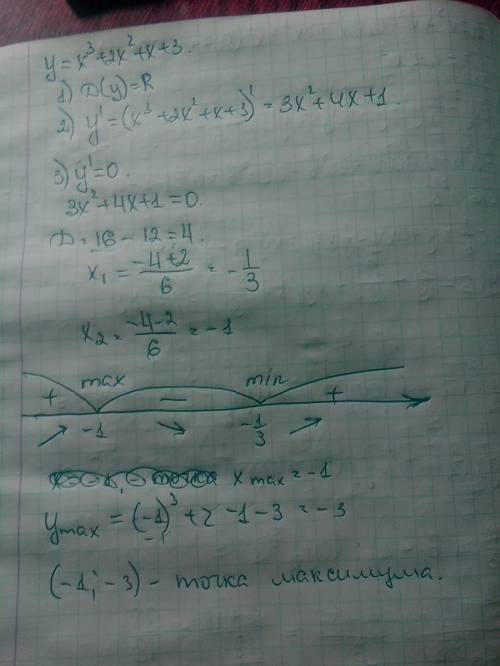 y = x³ + 2x² + x + 3.
1) D(y) = R
2) y' = (x³ + 2x² + x + 3)' = 3x² + 4x + 1.
3) y' = 0.
3x² + 4x + 1 = 0.
D = 16 - 12 = 4.
x₁ = (-4+2)/6 = -1/3
x₂ = (-4-2)/6 = -1
max min
+ - +
-1 -1/3
x max = -1
y max = (-1)³ + 2 - 1 - 3 = -3
(-1; -3) - точка максимума.